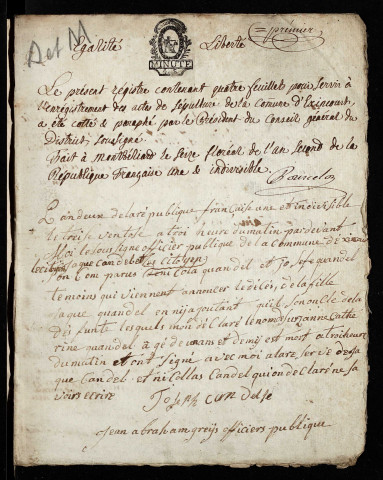 D et M
Egalité Liberté
= premier
MINUTE
Le présent régistre contenant quatre feuillets pour servir à
l'enregistrement des actes de sépulture de la Comune d'Exincourt
a été cotté & paraphé par le Président du Conseil général du
District, soussigné
Fait à Montbéliard le seize floréal de l'an second de la
République Française une & indivisible.
Lan deux de la ré publique française une et indivisible
le troise ventose a troi heure du matin par devant
Moi le sous signé officier publique de la Commune de
le citoyen Jaque Candel et les Citoyen
son Com parus nicola quandel et Josef quandel
temoins qui viennent annoncer le déles de la fille
Jaque quandel en nija outant quil son oncle de la
défunte lesquels mon déClaré le nom de suzanne Cathe
rine quandel a gé de un ans et demis est mort a troi heure
du matin et ont signé avec moi a la re serve de Ja
que Candel et ni Collas Candel qui on de Claré ne sa
voire ecrire
Joseph
Jean abraham officiers publique